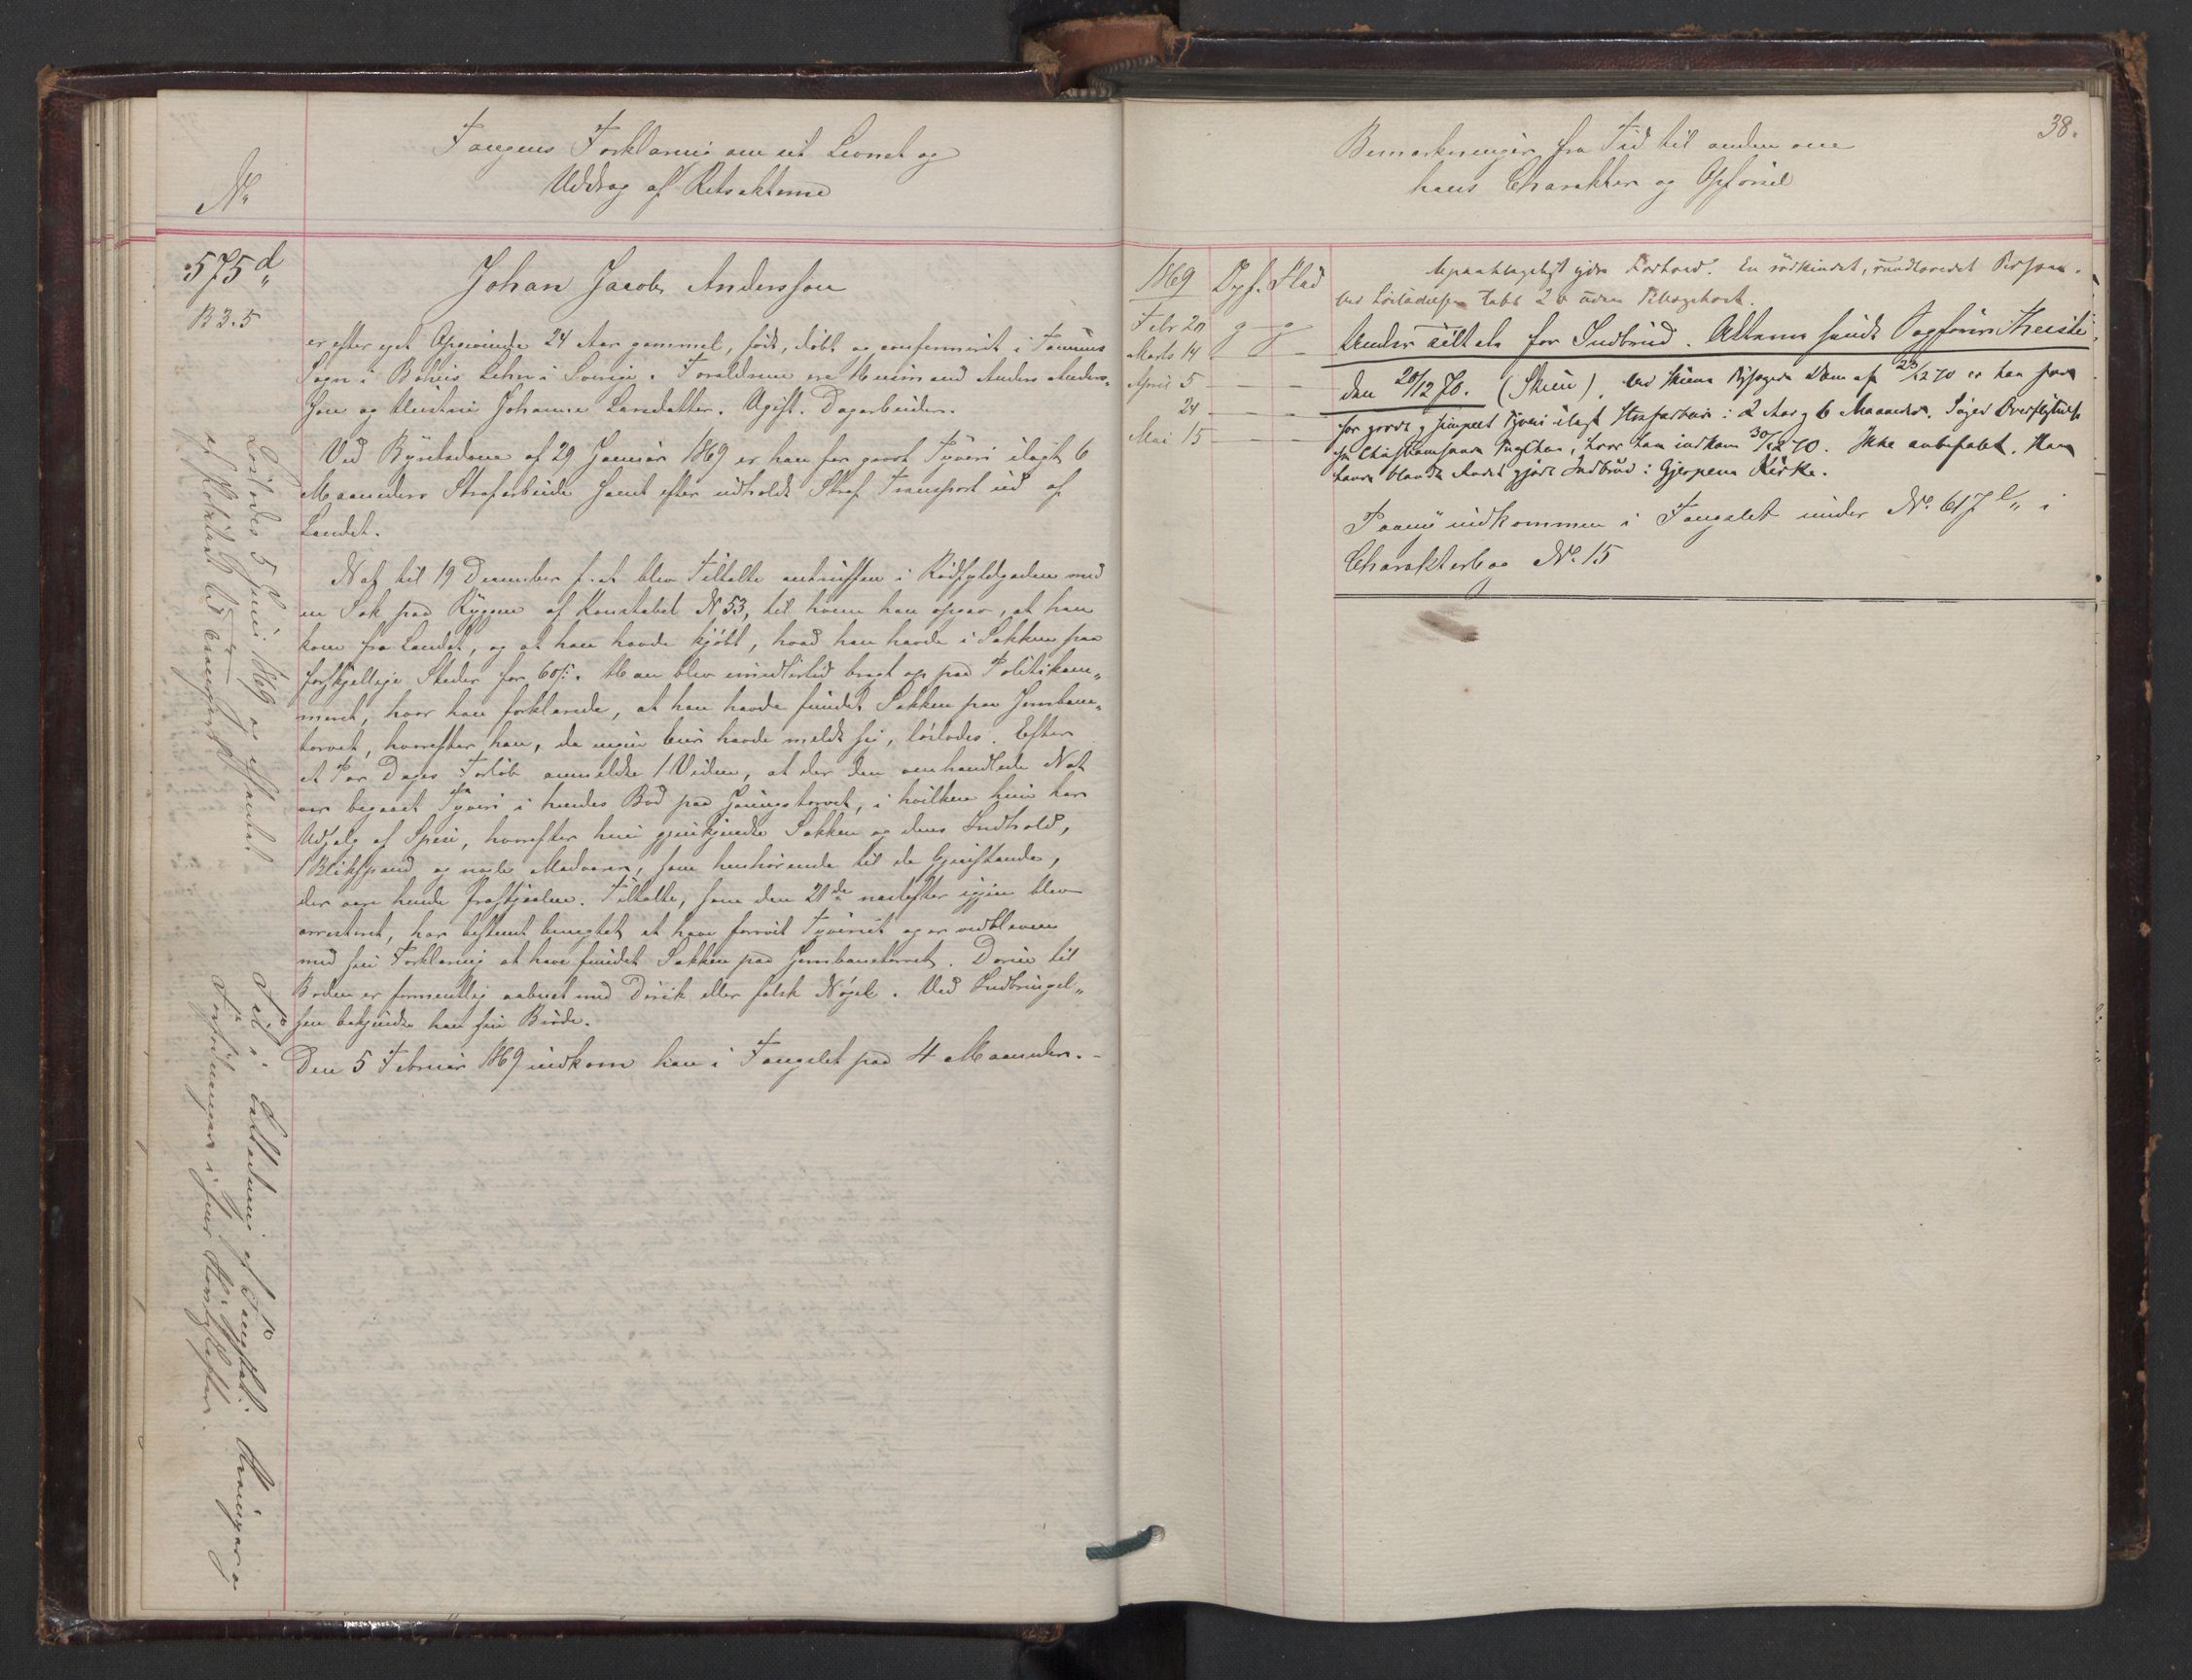 Fangens Forklaring om sit Levnet og
Uddrag af Retsakterne
No
575 d
B 3. 5
Johan Jacob Andersson
er efter eget Opgivende 24 Aar gammel, født, døbt og confirmeret i Tanums
Sogn i Bohus Lehn i Sverige. Forældrene ere Huusmand Anders Anders-
son og Hustru Johanne Larsdatter. Ugift. Dagarbeider.
Ved Byretsdom af 29 Januar 1869 er han for grovt Tyveri ilagt 6
Maaneders Strafarbeide samt efter udholdt Straf Transport ud af
Landet.
Nat til 19 December f. A. blev Tiltalte antruffen i Rødfyldgaden med
en Sæk paa Ryggen af Konstabel No 53, til hvem han opgav, at han
kom fra Landet, og at han havde kjøbt, hvad han havde i Sækken paa
forskjellige Steder for 60 ß. Han blev imidlertid bragt op paa Politikam-
meret, hvor han forklarede, at han havde fundet Sækken paa Jernbane-
torvet, hvorefter han, da ingen Eier havde meldt sig, løslodes. Efter
et Par Dages Forløb anmeldte 1 Vidne, at der den omhandlede Nat
var begaaet Tyveri i hendes Bod paa Youngstorvet, i hvilken hun har
Udsalg af Spise, hvorefter hun gjenkjendte Sækken og dens Indhold,
1 Blikspand og nogle Madvarer, som henhørende til de Gjenstande,
der var hende frastjaalne. Tiltalte, som den 21de næstefter igjen blev
arresteret, har bestemt benægtet at have forøvet Tyveriet og er vedbleven
med sin Forklaring at have fundet Sækken paa Jernbanetorvet. Døren til
Boden er formentlig aabnet med Dirik eller falsk Nøgel. Ved Indbringel-
sen bekjendte han sin Brøde.
Den 5 Februar 1869 indkom han i Fængslet paa 4 Maaneder.
Løslodes 5 Juni 1869 og afhentet
af Politiet til
Fdt i Erstatning af Fængslet:
Forsilninger i
38.
Bemærkninger fra Tid til anden om
hans Charakter og Opførsel
1869 Opf. Flid
Febr 20 g g
Marts 14 — —
April 5 — —
24 — —
Mai 15 — —
Upaaklageligt ydre Forhold. En rødkindet, rundlavedet Person.
Ved Løsladelsen
Under Tiltale for Indbrud. Attaane sendt Sagfører Theiste
den 20/12 70. (Skien). Ved Skiens Bysøgns Dom af 23/12 70 er han paa
for grovt og simpelt Tyveri ilagt Strafarbeide i 2 Aar og 6 Maaneder.
paa Christianssands Tugthus, hvor han indkom 30/12 70. Ikke anbefalet. Han
havde blandt Andet gjort Indbrud i Gjerpens Kirke.
Paany indkommen i Fængslet under No. 617 e i
Charakterbog No. 15